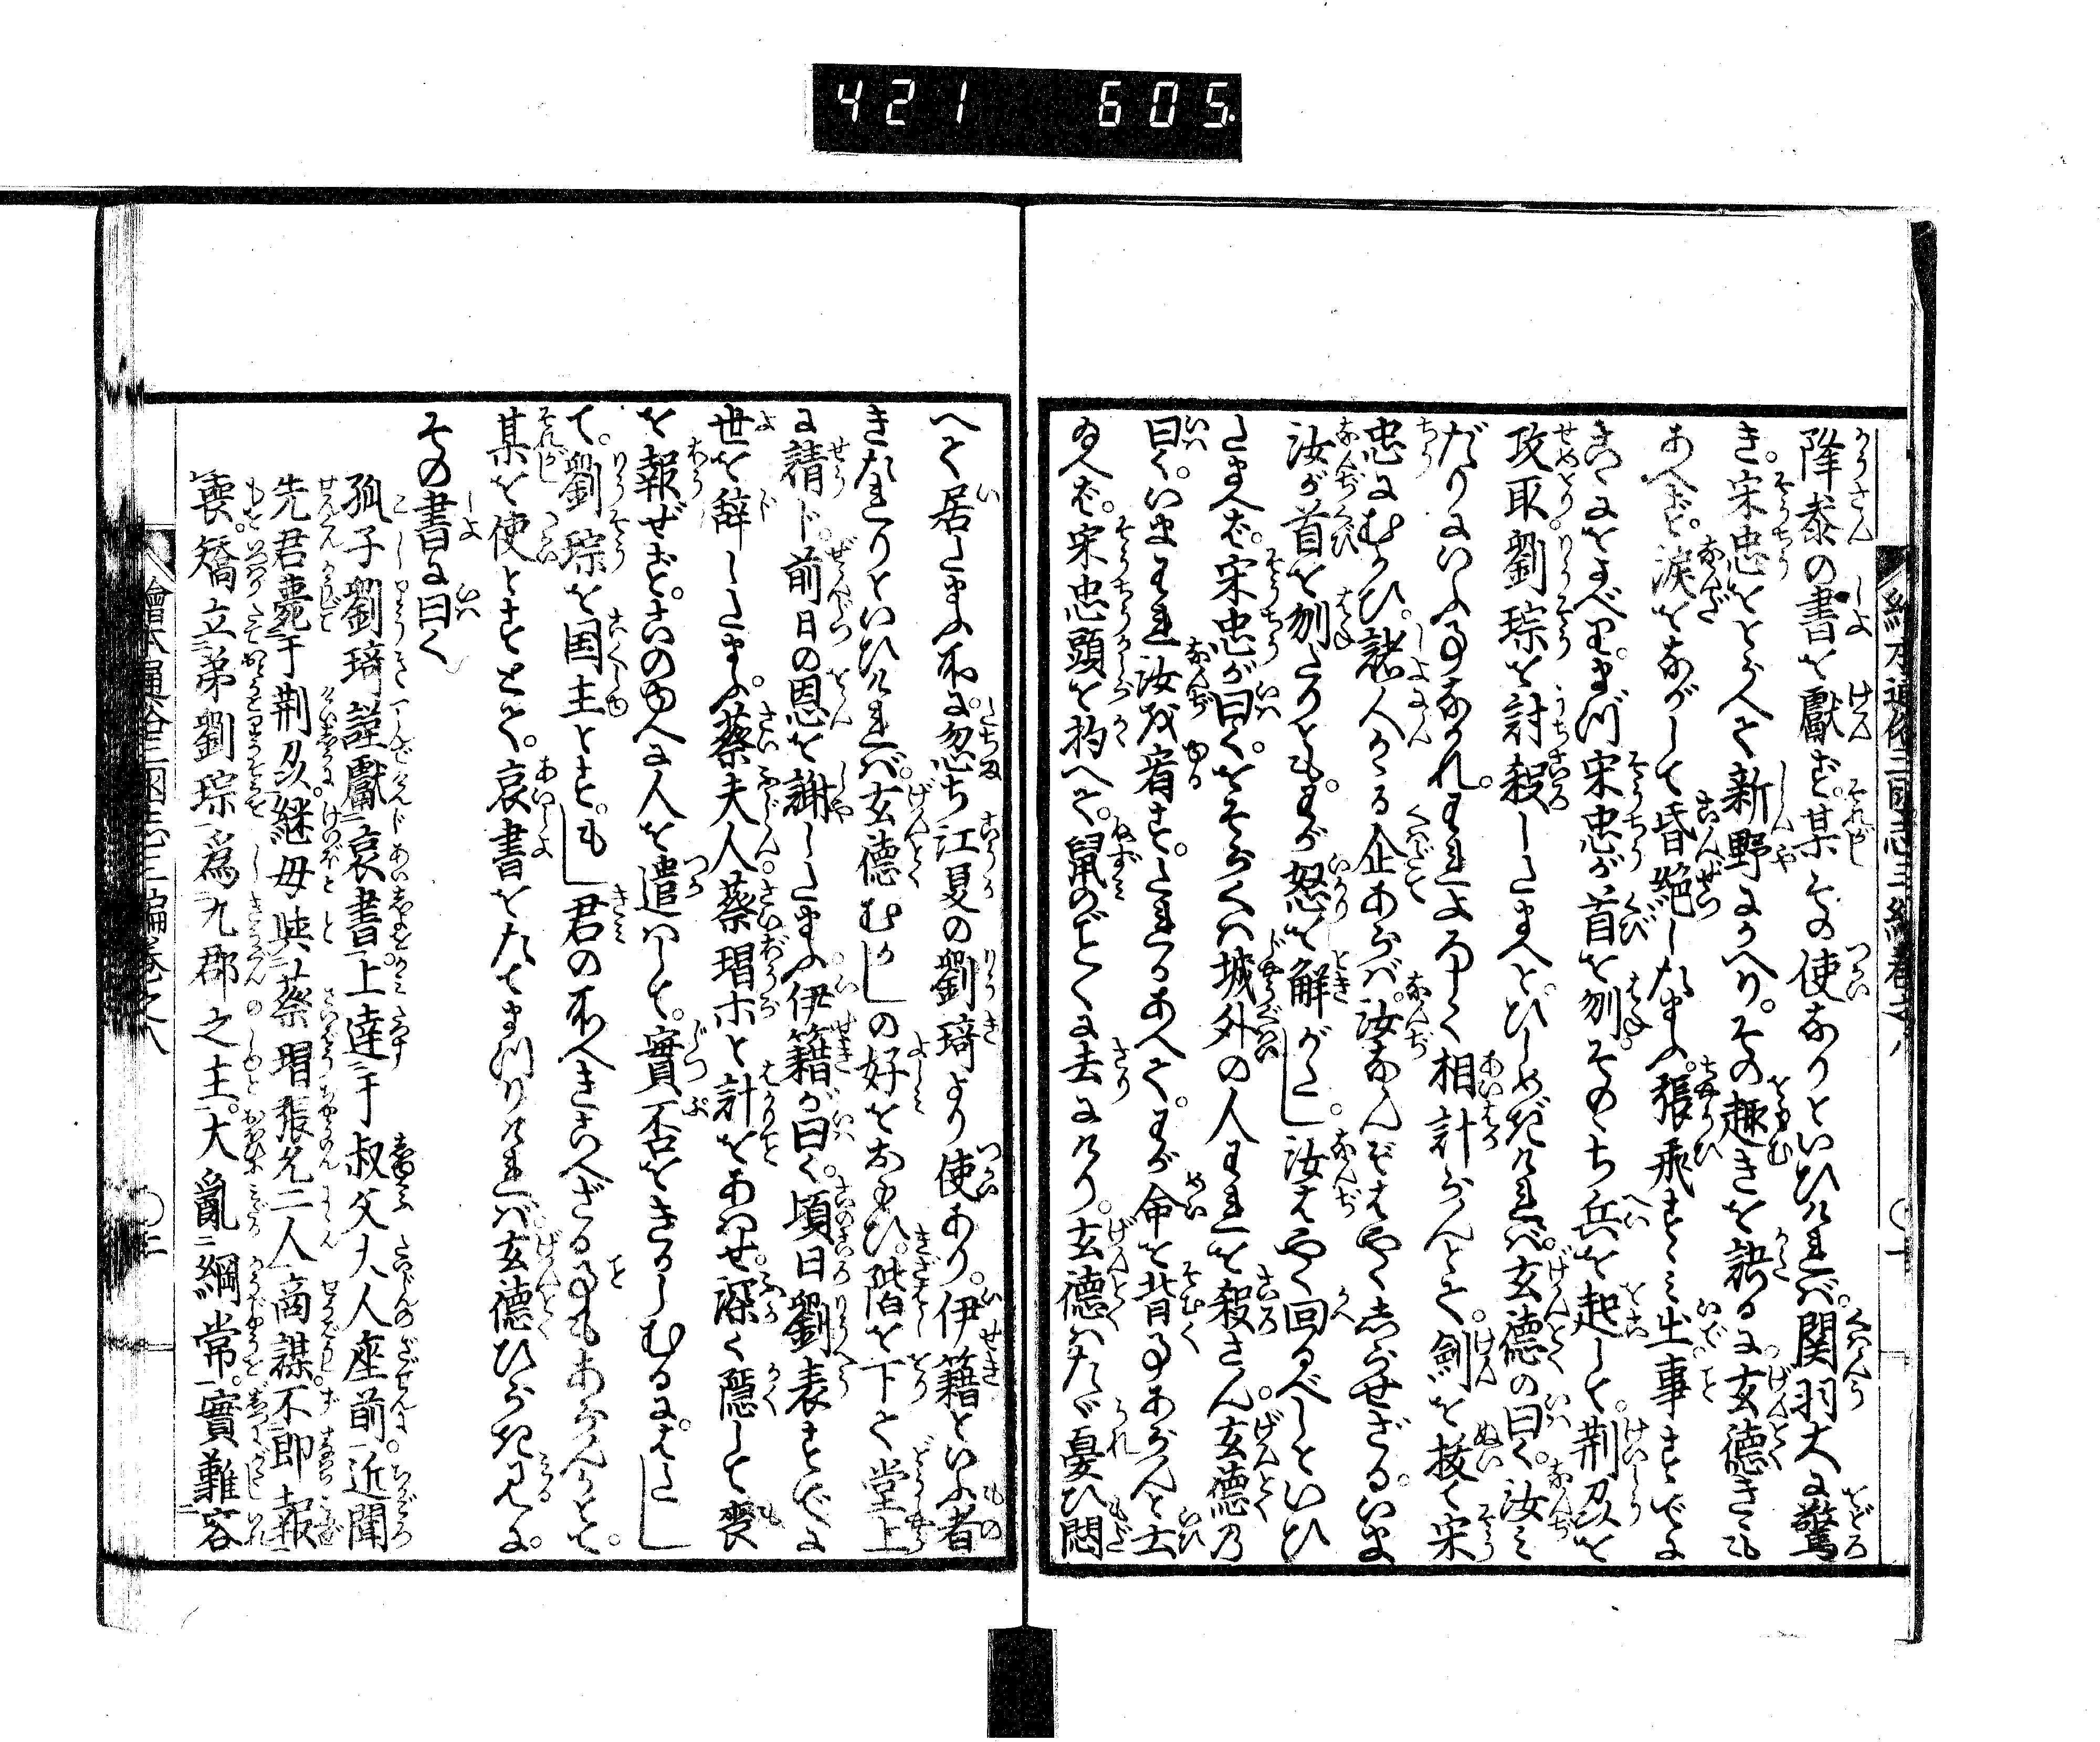 421 605
降参の書を獻ず某その使なりといひければ関羽大に驚
き宋忠をとらへて新野にかへりその趣きを訣るに玄徳きゝも
あへず涙をながして昏絶したまふ張飛すゝみ出事すでに
きゝにをよべりまづ宋忠が首を刎そのゝち兵を起して荆州を
攻取劉琮を討殺したまへとひしめきければ玄徳の曰く汝み
だりにいふ事なかれわれよろしく相計らんとて劍を抜て宋
忠にむかひ諸人かゝる企あらば汝なんぞはやくしらせざるいま
汝が首を刎たりともわが怒を解がたし汝はやく回るべしといひ
たまへば宋忠が曰くをそらくは城外の人われを殺さん玄徳乃
曰くいまわれ汝を宥すたれかあへてわが命を背事あらんと士
ゐへば宋忠頭を抱へて鼠のごとくに去にけり玄徳はたゞ憂ひ悶
へて居たまふ所に忽ち江夏の劉琦より使あり伊籍といふ者
きたれりといひければ玄徳むかしの好をおもひ階を下て堂上
に請じ前日の恩を謝したまふ伊籍が曰く頃日劉表すでに
世を辞したまふ蔡夫人蔡瑁ホと計をあはせ深く隱して喪
を報ぜずこのゆへに人を遣はして實否をきかしむるにはたし
て劉琮を国主とすもし君の所へきこへざる事もあらんかとて
某を使とすとて哀書をたてまつりければ玄徳ひらき見るに
その書に曰く
孤子劉琦謹獻哀書上達于叔父大人座前近聞
先君薨于荆州継母與蔡瑁張允二人商謀不即報
喪矯立弟劉琮爲九郡之主大亂綱常實難容